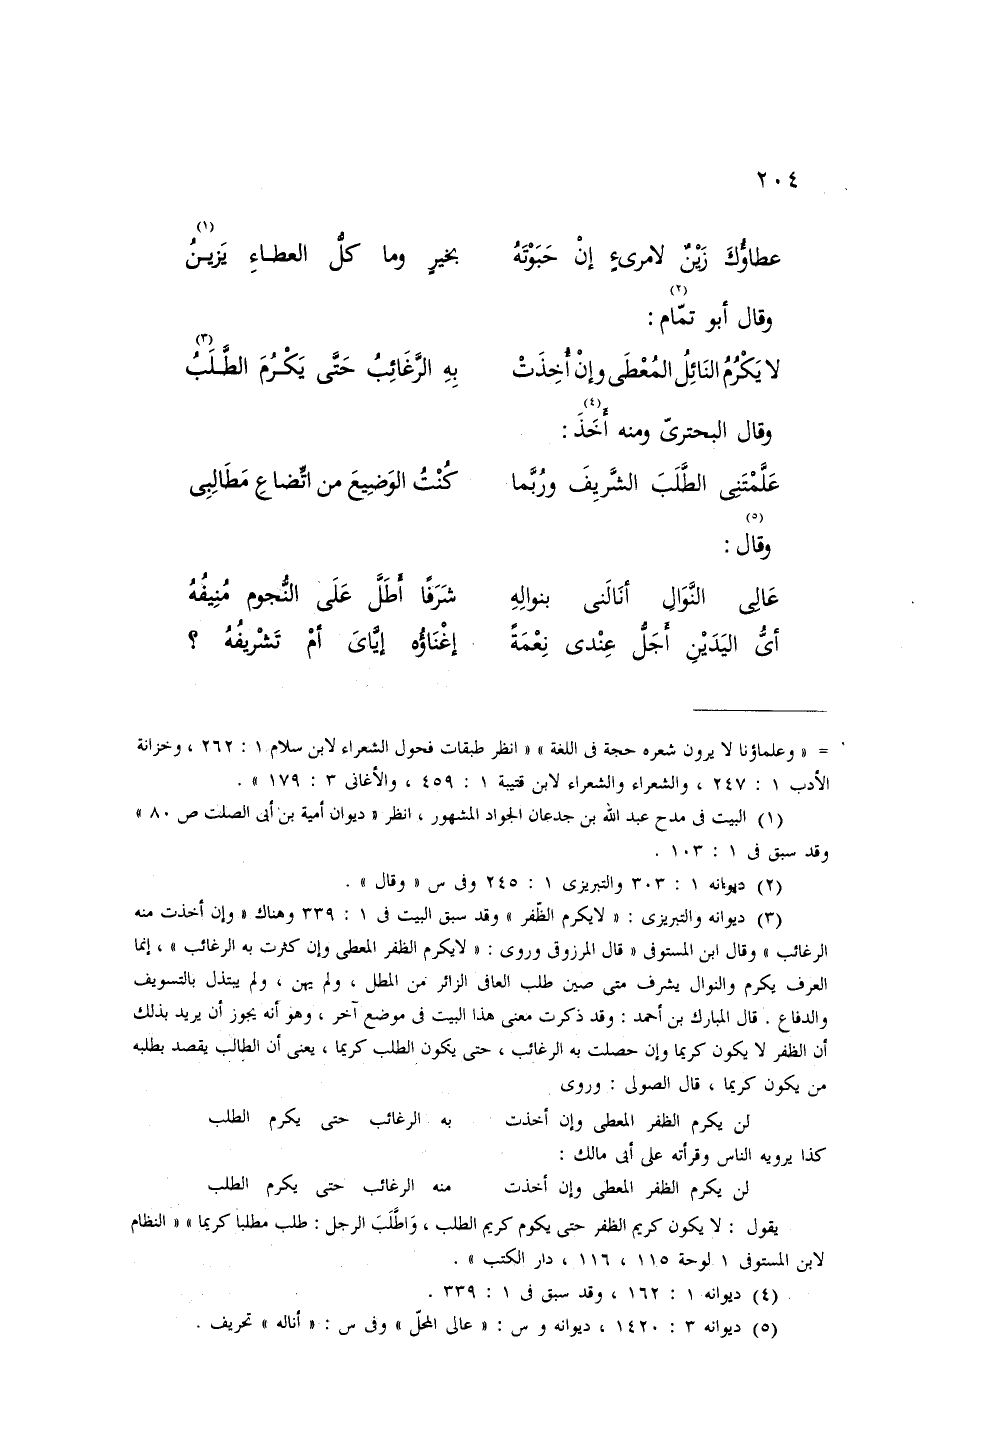 ٢٠٤
عطاؤُكَ زَيْنٌ لامرىءٍ إنْ حَبَوْتَهُ بخيرٍ وما كلُّ العطاءِ يَزِينُ (١)
وقال أبو تمّام (٢) :
لا يَكْرُمُ النَائِلُ المُعْطَى وإنْ أُخِذَتْ بِهِ الرَّغَائِبُ حَتَّى يَكْرُمَ الطَّلَبُ (٣)
وقال البحترىّ ومنه أَخَذَ (٤) :
عَلَّمْتَنِى الطَّلَبَ الشَّرِيفَ ورُبَّما كُنْتُ الوَضِيعَ من اتِّضاعِ مَطَالِبِى
وقال (٥) :
عَالِى النَّوَالِ أنَالَنى بنوالِهِ شَرَفًا أَطَلَّ عَلَى النُّجوم مُنِيفُهُ
أىُّ اليَدَيْنِ أَجَلُّ عِنْدى نِعْمَةً إغْنَاؤُه إيَّاىَ أمْ تَشْرِيفُهُ ؟
= « وعلماؤنا لا يرون شعره حجة فى اللغة » « انظر طبقات فحول الشعراء لابن سلام ١ : ٢٦٢ ، وخزانة
الأدب ١ : ٢٤٧ ، والشعراء والشعراء لابن قتيبة ١ : ٤٥٩ ، والأغانى ٣ : ١٧٩ » .
(١) البيت فى مدح عبد الله بن جدعان الجواد المشهور ، انظر « ديوان أمية بن أبى الصلت ص ٨٠ »
وقد سبق فى ١ : ١٠٣ .
(٢) ديوانه ١ : ٣٠٣ والتبريزى ١ : ٢٤٥ وفى س « وقال » .
(٣) ديوانه والتبريزى : « لايكرم الظّفر » وقد سبق البيت فى ١ : ٣٣٩ وهناك « وإن أخذت منه
الرغائب » وقال ابن المستوفى « قال المرزوقى وروى : « لايكرم الظفر المعطى وإن كثرت به الرغائب » ، إنما
العرف يكرم والنوال يشرف متى صين طلب العافى الزائر من المطل ، ولم يهن ، ولم يبتذل بالتسويف
والدفاع . قال المبارك بن أحمد : وقد ذكرت معنى هذا البيت فى موضع آخر ، وهو أنه يجوز أن يريد بذلك
أن الظفر لا يكون كريما وإن حصلت به الرغائب ، حتى يكون الطلب كريما ، يعنى أن الطالب يقصد بطلبه
من يكون كريما ، قال الصولى : وروى
لن يكرم الظفر المعطى وإن أخذت به الرغائب حتى يكرم الطلب
كذا يرويه الناس وقرأته على أبى مالك :
لن يكرم الظفر المعطى وإن أخذت منه الرغائب حتى يكرم الطلب
يقول : لا يكون كريم الظفر حتى يكوم كريم الطلب ، وَاطَّلَبَ الرجل : طلب مطلبا كريما » « النظام
لابن المستوفى ١ لوحة ١١٥ ، ١١٦ ، دار الكتب » .
(٤) ديوانه ١ : ١٦٢ ، وقد سبق فى ١ : ٣٣٩ .
(٥) ديوانه ٣ : ١٤٢٠ ، ديوانه و س : « عالى المحلّ » وفى س : « أناله » تحريف .